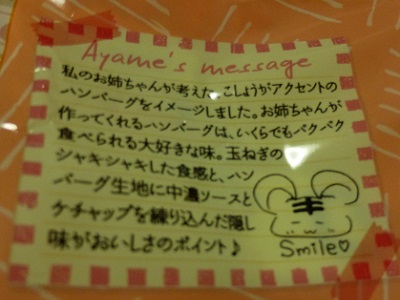 Ayame's message
私のお姉ちゃんが考えた、こしょうがアクセントの
ハンバーグをイメージしました。お姉ちゃんが
作ってくれるハンバーグは、いくらでもパクパク
食べられる大好きな味。玉ねぎの
シャキシャキした食感と、ハン
バーグ生地に中濃ソースと
ケチャップを練り込んだ隠し
味がおいしさのポイント♪
Smile♡